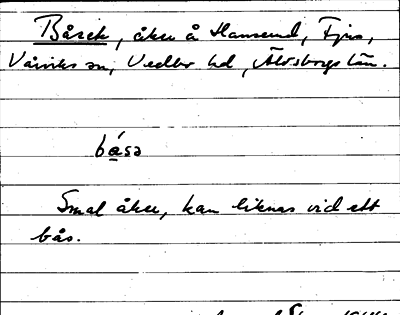 Båsek, åker å Hamsund, Fjus,
Vårviks sn, Vedbo hd, Älvsborgs län.
båsə
Smal åker, kan liknas vid ett
bås.